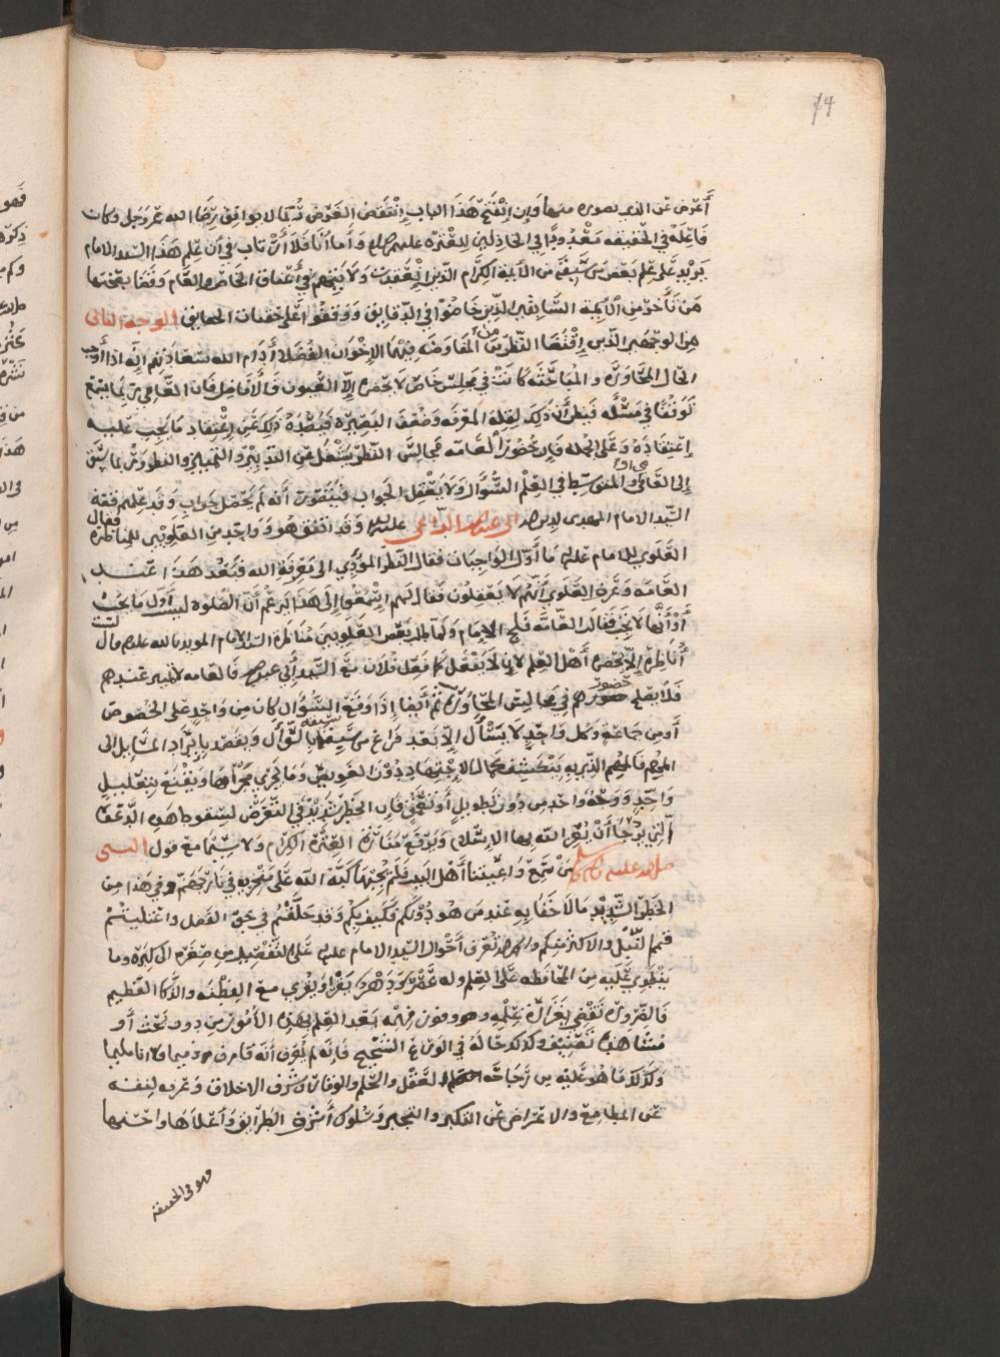 14
أعرض عن الذي بصوره منها وإن انفتح هذا الباب انتقض الغرض ثم لا يوافق رضا الله عز وجل وكان
فاعله في الحقيقه معدودًا في الخاذلين للعترة عليهم السلام وأما أنا فلا أرتاب في أن علم هذا السيد الامام
يزيد على علم بعض من سبق من الأئمة الكرام الذين ولا في أعناق الخاص والعام وقفا بعضها
من تأخر من الأئمة السابقين الذين خاضوا في الدقايق ووقفوا على خفيات الحقايق الوجه الثاني
هو الوجه الذين اقتضا النظر من المفاوضه بينها الإخوان الفضلا أدام الله سعادتهم إنه اذا أوجب
الحال المحاوره والمباحثه كانت في مجلس خاص لا يحضره إلا العيون والأفاضل فان العامي ربما يسمع
توقفا في مسئله فيظن أن ذلك لقلة المعرفه وضعف البصيره فيصده ذلك عن اعتقاد ما يجب عليه
إعتقاده وعلى الجمله فإن حضور العامه مجالس النظر يشغل عن التدبير والتمييز والنظر وربما سبق
إلى العامي أو المتوسط في العلم السؤال ولا يعقل الجواب فيتصور أنه لم يحصل جواب وقد علم قصة
السيد الامام المهدي لدين الله ابي عبدالله الداعي عليه السلم وقد اتفق هو وواحد من العلويين للمناظره فقال
العلوي للامام عليلم ما أول الواجبات فقال النظر المؤدي الى معرفة الله فبعد هذا
العامه وغره العلوي أنهم لا يعقلون فقال لهم اسمعوا إلى هذا يزعم أن الصلوه ليست أول ما يجب
أو أنها لا تجب فقالت العامه فلج الامام ولما طلب بعض العلويين مناظرة السيد الامام المويد بالله عليلم قال لست
أناظره إلا بحضرة أهل العلم لا يفعل كما فعل فلان مع السيد أبي عبدالله فالعامه لا تمييز عندهم
فلا يصلح حضورهم في مجالس المحاورة ثم أيضا إذا وقع السؤال كان من واحد على الخصوص
أو من جماعة وكل واحد لا يسأل إلا بعد فراغ من سبقه بالسؤال ويقصد بإيراد المسايل الى
المهم فالمهم الذي به ينكشف حال الاجتهاد دون الغويص وما يجري مجراها ويقنع بتعليل
واحد ووجه واحد من دون تطويل أو تعمق فإن الخطر شديد في التعرض لسقوط هذه الدعوة
التي يرجا أن يعز الله بها الإسلام ويرفع منارة العترة الكرام ولا سيما مع قول النبي
صلى الله عليه وآله وسلم من سمع داعيتنا أهل البيت فلم يجبها كبه الله على منخريه في نار جهنم وفي هذا من
الخطر الشديد ما لا خفا به عند من هو دونكم فكيف بكم وقد حلقتم في جو الفضل واعتليتم
قمم النبل والاكثر منكم نعرف أحوال السيد الامام عليه السلام على التفصيل من صغره الى كبره وما
ينطوي عليه من المحافظه على العلم وله عمر ودهر يقرأ ويقري مع الفطنه والذكا العظيم
فالضرورة تقضي بغزارة علمه وهو فوق فهمه بعد العلم بهذه الأمور من دون بحث أو
مشاهدة تصنيف وكذلك حاله في الورع الشحيح فإنه لم يعرف أنه قارف ذميما
وكذلك ما هو عليه من رجاحة العقل والحلم والوقار وشرف الاخلاق وعزبه لنفسه
عن المطامع والاعتراض عن التكبر والتجبر وسلوك أشرف الطرايق وأعلاها واحسنها
وهو في الحقيقة